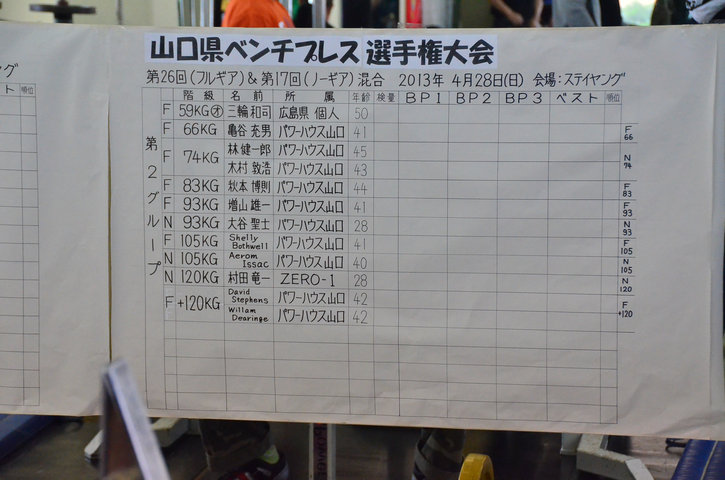 山口県ベンチプレス 選手権大会
第26回(フルギア)&第17回(ノーギア)混合 2013年 4月28日(日) 会場:ステイヤング
階級 名前 所属 年齢 検量 BP1 BP2 BP3 ベスト 順位
第2グループ
F 59KGオ 三輪 和司 広島県 個人 50
F 66KG 亀谷 充男 パワーハウス山口 41
F 74KG 林 健一郎 パワーハウス山口 45
木村 敦浩 パワーハウス山口 43
F 83KG 秋本 博則 パワーハウス山口 44
F 93KG 増山 雄一 パワーハウス山口 41
N 93KG 大谷 聖士 パワーハウス山口 28
F 105KG Shelly Bothwell パワーハウス山口 41
N 105KG Aerom Issac パワーハウス山口 40
N 120KG 村田 竜一 ZERO-1 28
F +120KG David Stephens パワーハウス山口 42
Willam Dearinge パワーハウス山口 42
F 66
N 74
F 83
F 93
N 93
F 105
N 105
N 120
F +120
ング
ト 順位